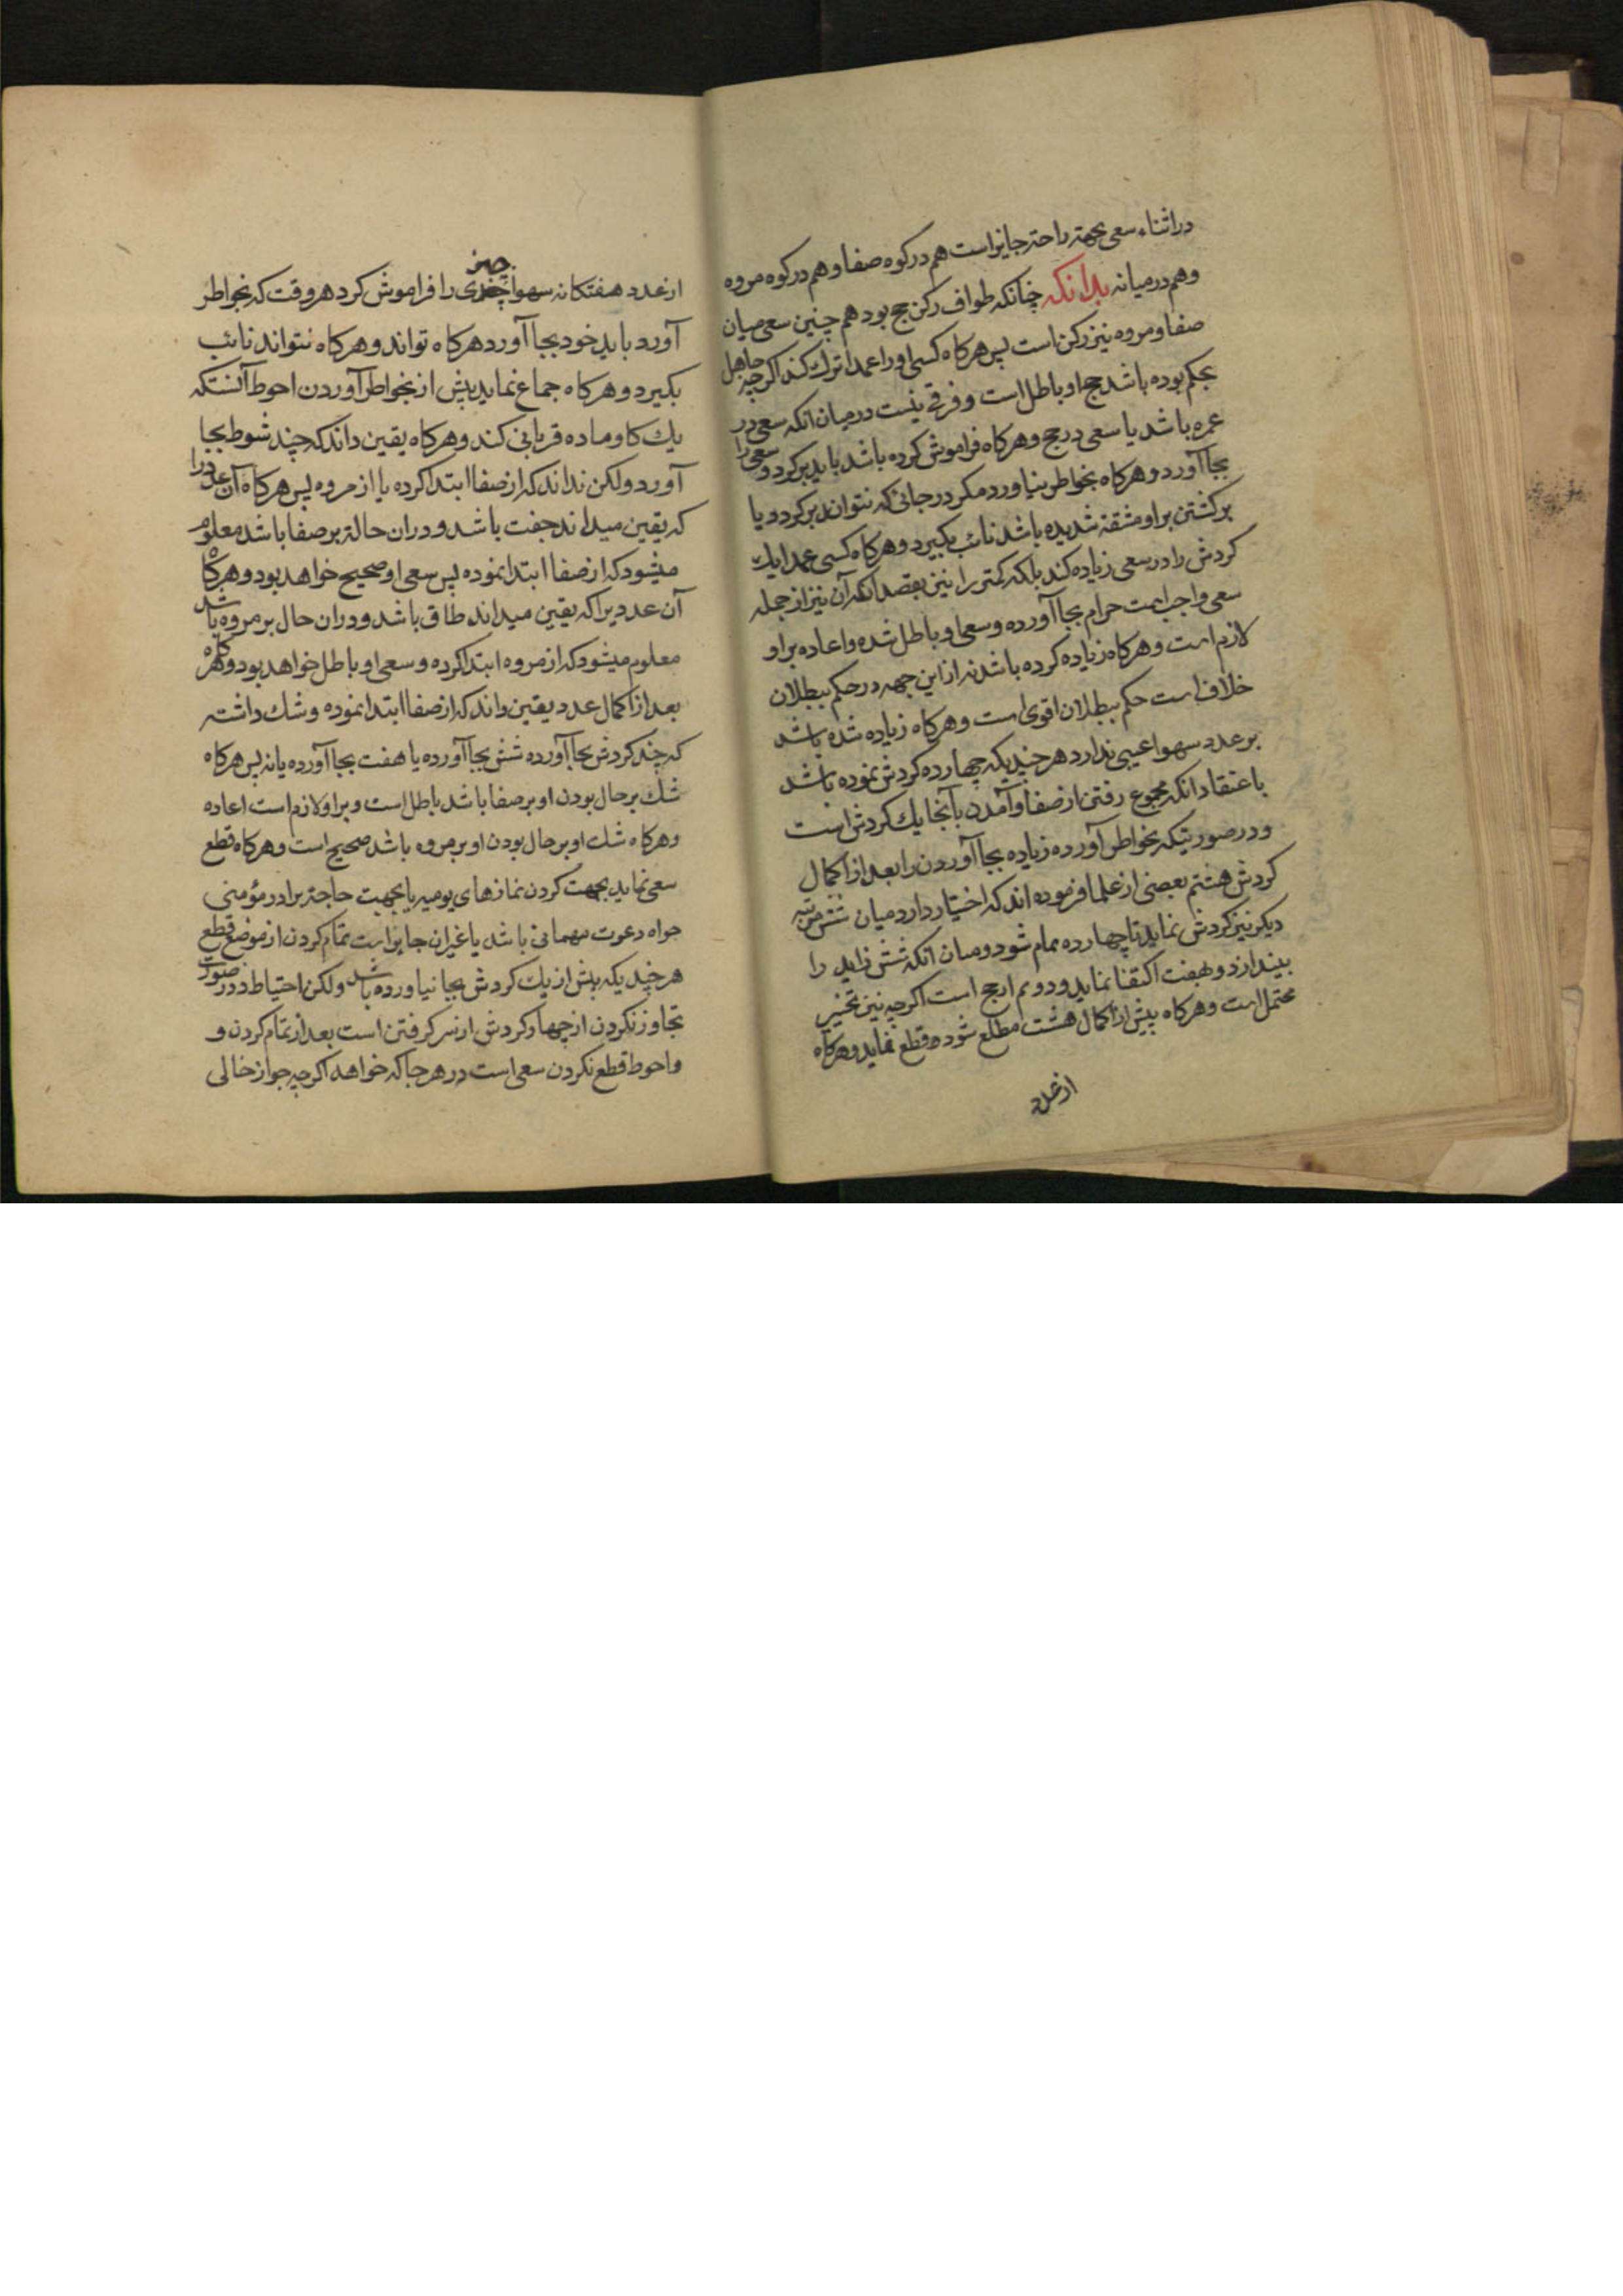 در اثناء سعی بجهة راحة جایز است هم در کوه صفا و هم در کوه مروه
و هم در میانه بدانکه چنانکه طواف رکن حج بود هم چنین سعی میان
صفا و مروه نیز رکن است پس هرکاه کسی او را عمدا ترک کند اکرچه جاهل
بحکم بوده باشد حج او باطل است و فرقی نیست در میان انکه سعی در
عمره باشد یا سعی در حج و هرکاه فراموش کرده باشد باید برکردد و سعی را
بجا آورد و هرکاه بخواطر نیاورد مکر در جائی که نتواند برکردد یا
برکشتن بر او مشقة شدیده باشد نائب بکیرد و هرکاه کسی عمدا یک
کردش را در سعی زیاده کند بلکه کمتر را نیز بقصد انکه آن نیز از جمله
سعی واجب است حرام بجا آورده و سعی او باطل شده و اعاده بر او
لازم است و هرکاه زیاده کرده باشد نه از این جهه در حکم ببطلان
خلاف است حکم ببطلان اقوی است و هرکاه زیاده شده باشد
بر عدد سهوا عیبی ندارد هر چندیکه چهارده کردش نموده باشد
باعتقاد انکه مجموع رفتن از صفا و آمدن بآنجا یک کردش است
و در صورتیکه بخواطر آورده زیاده بجا آوردن را بعد از اکمال
کردش هشتم بعضی از علما فرموده اند که اختیار دارد میان شش مرتبه
دیکر نیز کردش نماید تا چهارده تمام شود و میان انکه شش زاید را
بیندازد و بهفت اکتفا نماید و دویم ارجح است اکرچه نیز تخییر
محتمل است و هرکاه پیش از اکمال هشت مطلع شود قطع نماید و هرکاه
از عدد
از عدد هفتکانه سهوا چیزی را فراموش کرد هر وقت که بخواطر
آورد باید خود بجا آورد هرکاه تواند و هرکاه نتواند نائب
بکیرد و هرکاه جماع نماید پیش از بخواطر آوردن احوط آنستکه
یک کاو ماده قربانی کند و هرکاه یقین داند که چند شوط بجا
آورد ولکن نداند که از صفا ابتدا کرده یا از مروه پس هرکاه آن عدد را
که یقین میداند جفت باشد و در ان حالة بر صفا باشد معلوم
میشود که از صفا ابتدا نموده پس سعی او صحیح خواهد بود و هرکاه
آن عددیرا که یقین میداند طاق باشد و در ان حال بر مروه باشد
معلوم میشود که از مروه ابتدا کرده و سعی او باطل خواهد بود و هرکاه
بعد از اکمال عدد یقین داند که از صفا ابتدا نموده و شک داشته
که چند کردش بجا آورده شش بجا آورده یا هفت بجا آورده یا نه پس هرکاه
شک بر حال بودن او بر صفا باشد باطل است و بر او لازم است اعاده
و هرکاه شک او بر حال بودن او بر مروه باشد صحیح است و هرکاه قطع
سعی نماید بجهت کردن نمازهای یومیه یا بجهت حاجة برادر مؤمنی
خواه دعوت مهمانی باشد یا غیران جایز است تمام کردن از موضع قطع
هر چندیکه بیش از یک کردش بجا نیاورده باشد ولکن احتیاط در صورت
تجاوز نکردن از چهار کردش از سر کرفتن است بعد از تمام کردن و
و احوط قطع نکردن سعی است در هر جا که خواهد اکرچه جواز خالی